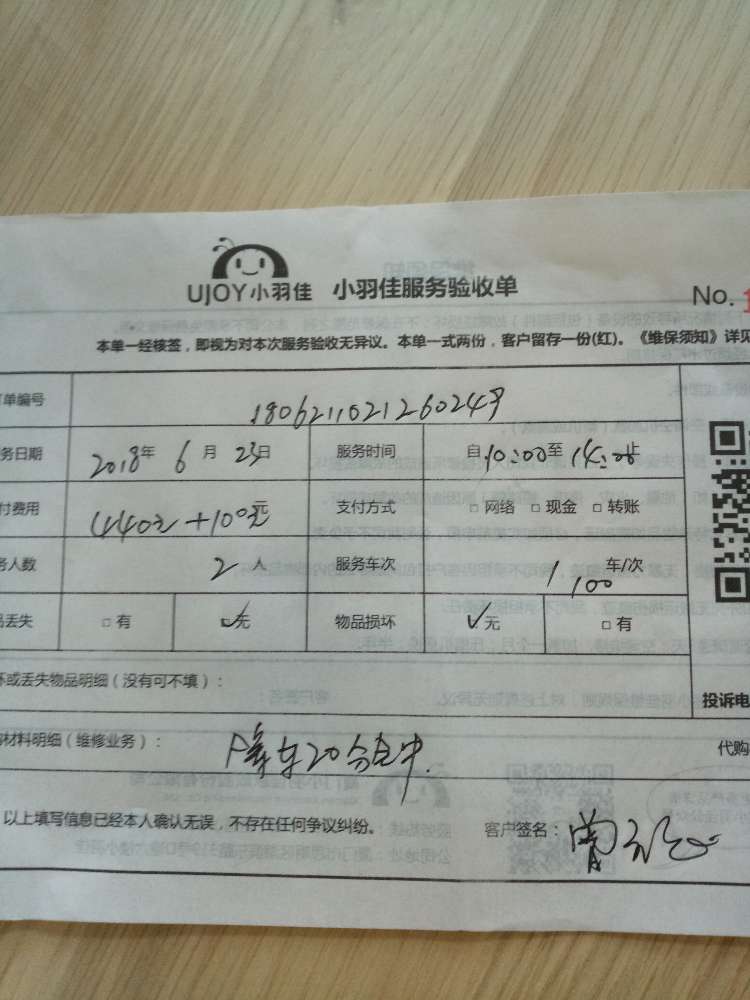 UJOY小羽佳 小羽佳服务验收单
No.
本单一经核签,即视为对本次服务验收无异议。本单一式两份,客户留存一份(红)。《维保须知》详见
单编号 180621102126024
务日期 2018年 6 月 23日 服务时间 自 10:00至 14:00止
付费用 440元+100元 支付方式 □ 网络 □ 现金 □ 转账
务人数 2 人 服务车次 1 车/次
100
品丢失 □ 有 ☑无 物品损坏 ☑无 □ 有
坏或丢失物品明细(没有可不填):
投诉电
材料明细(维修业务): 车20分钟
代购
以上填写信息已经本人确认无误,不存在任何争议纠纷。 客户签名: